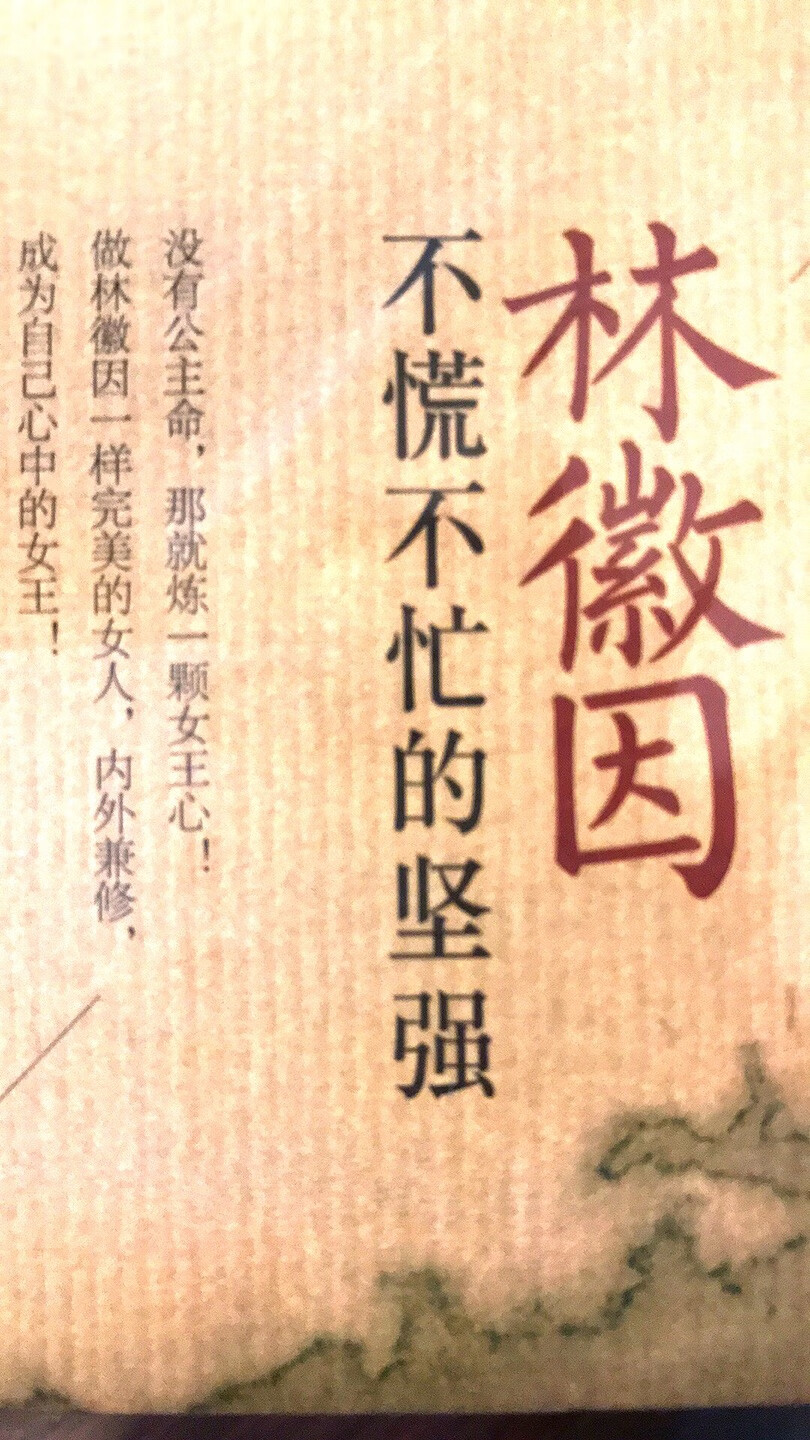 林徽因
不慌不忙的坚强
没有公主命，那就炼一颗女王心！
做林徽因一样完美的女人，内外兼修，
成为自己心中的女王！